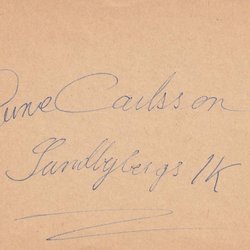 Rune Carlsson
Sundbybergs IK